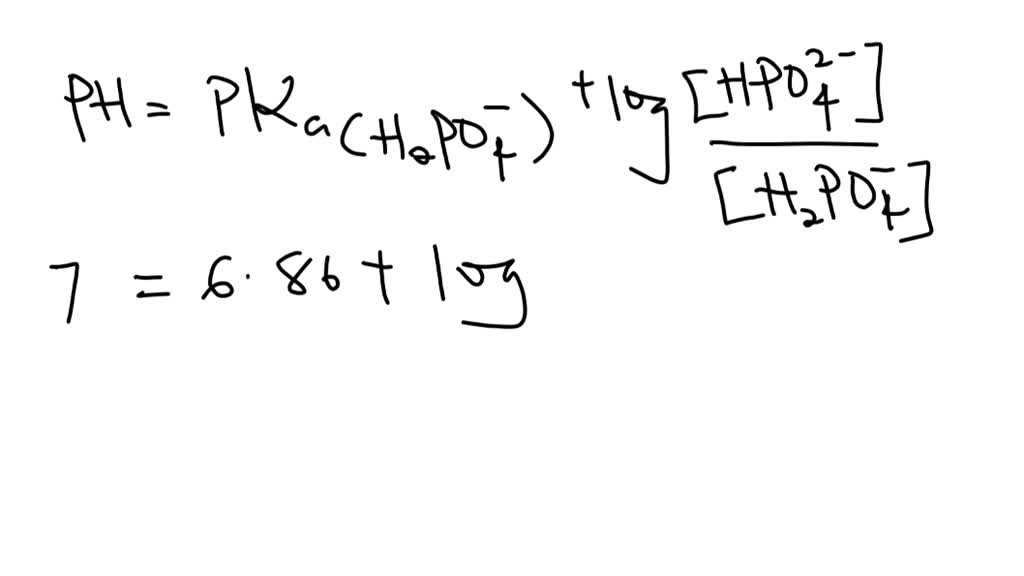 PH = PKa(H₂PO₄⁻) + log [HPO₄²⁻] / [H₂PO₄⁻]
7 = 6.86 + log